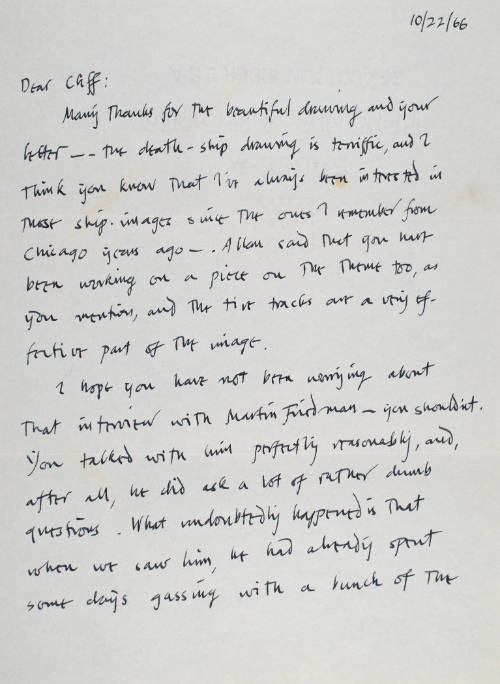 10/22/66
Dear Cliff:
Many Thanks for the beautiful drawing and your
letter -- the death-ship drawing is terriffic, and I
think you know that I've always been interested in
those ship-images since the ones I remember from
Chicago years ago -. Allan said that you have
been working on a piece on the theme too, as
you mention, and the tire tracks are a very ef-
fective part of the image.
I hope you have not been worrying about
that interview with Martin Friedman - you shouldn't.
You talked with him perfectly reasonably, and,
after all, he did ask a lot of rather dumb
questions. What undoubtedly happened is that
when we saw him, he had already spent
some days gassing with a bunch of the